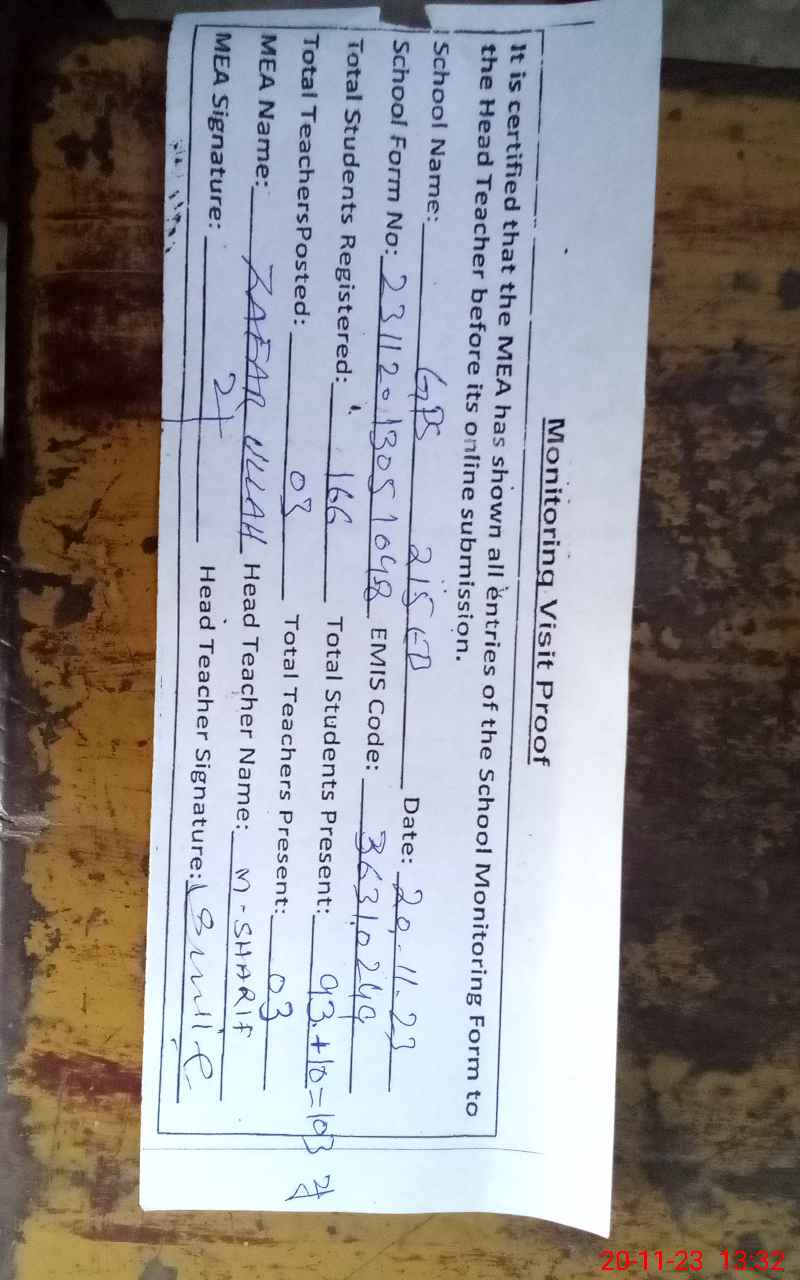 Monitoring Visit Proof
It is certified that the MEA has shown all entries of the School Monitoring Form to
the Head Teacher before its online submission.
School Name: GPS 215 EB Date: 20-11-23
School Form No: 23112013051048 EMIS Code: 36310249
Total Students Registered: 166 Total Students Present: 93+10=103
Total TeachersPosted: 03 Total Teachers Present: 03
MEA Name: ZAFAR ULLAH Head Teacher Name: M-SHARIF
MEA Signature: Head Teacher Signature:
20-11-23 13:32